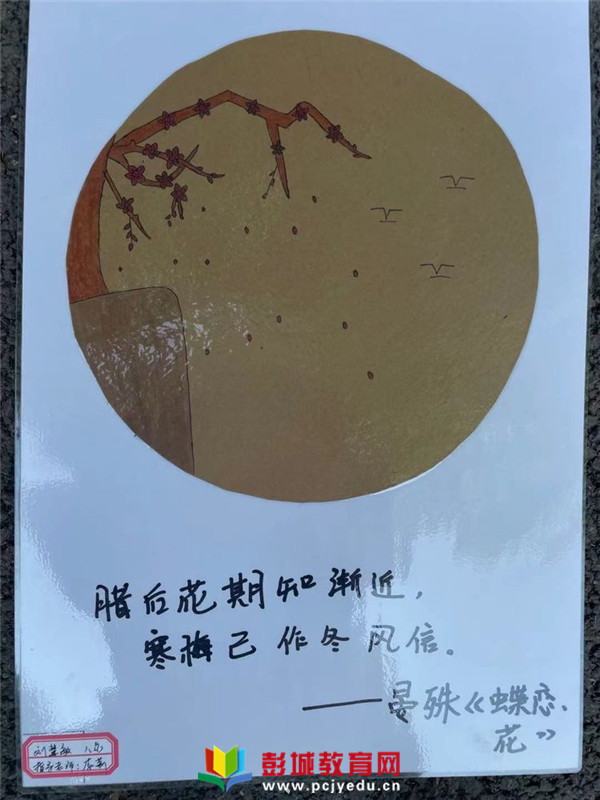 腊后花期知渐近，
寒梅已作冬风信。
——晏殊《蝶恋
花》
指导老师：
彭城教育网
www.pcjyedu.cn